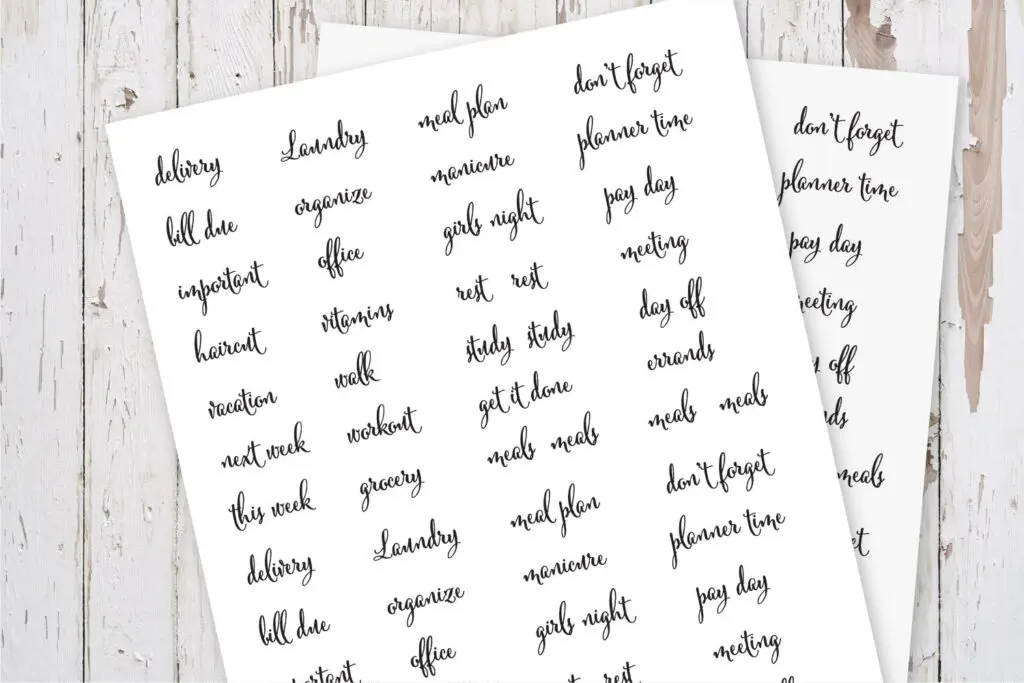 delivery Laundry meal plan don't forget
bill due organize manicure planner time
important office girls night pay day
haircut vitamins rest rest meeting
vacation walk study study day off
next week workout get it done errands
this week grocery meals meals meals meals
delivery Laundry meal plan don't forget
bill due organize manicure planner time
office girls night pay day
rest meeting
don't forget
planner time
pay day
eeting
off
ds
meals